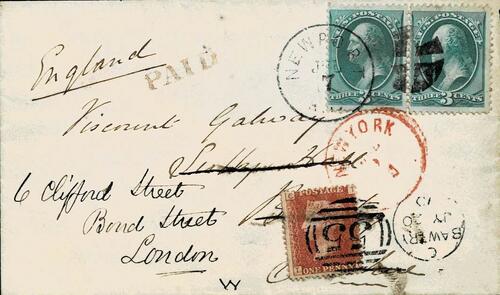 England
PAID
NEWPORT
7
U.S. POSTAGE
THREE 3 CENTS
U.S. POSTAGE
THREE 3 CENTS
Viscount Galway
NEW YORK
Hall
6 Clifford Street
Bond Street
London
POSTAGE
ONE PENNY
55
C
BAWTRY
JY 20
75
W